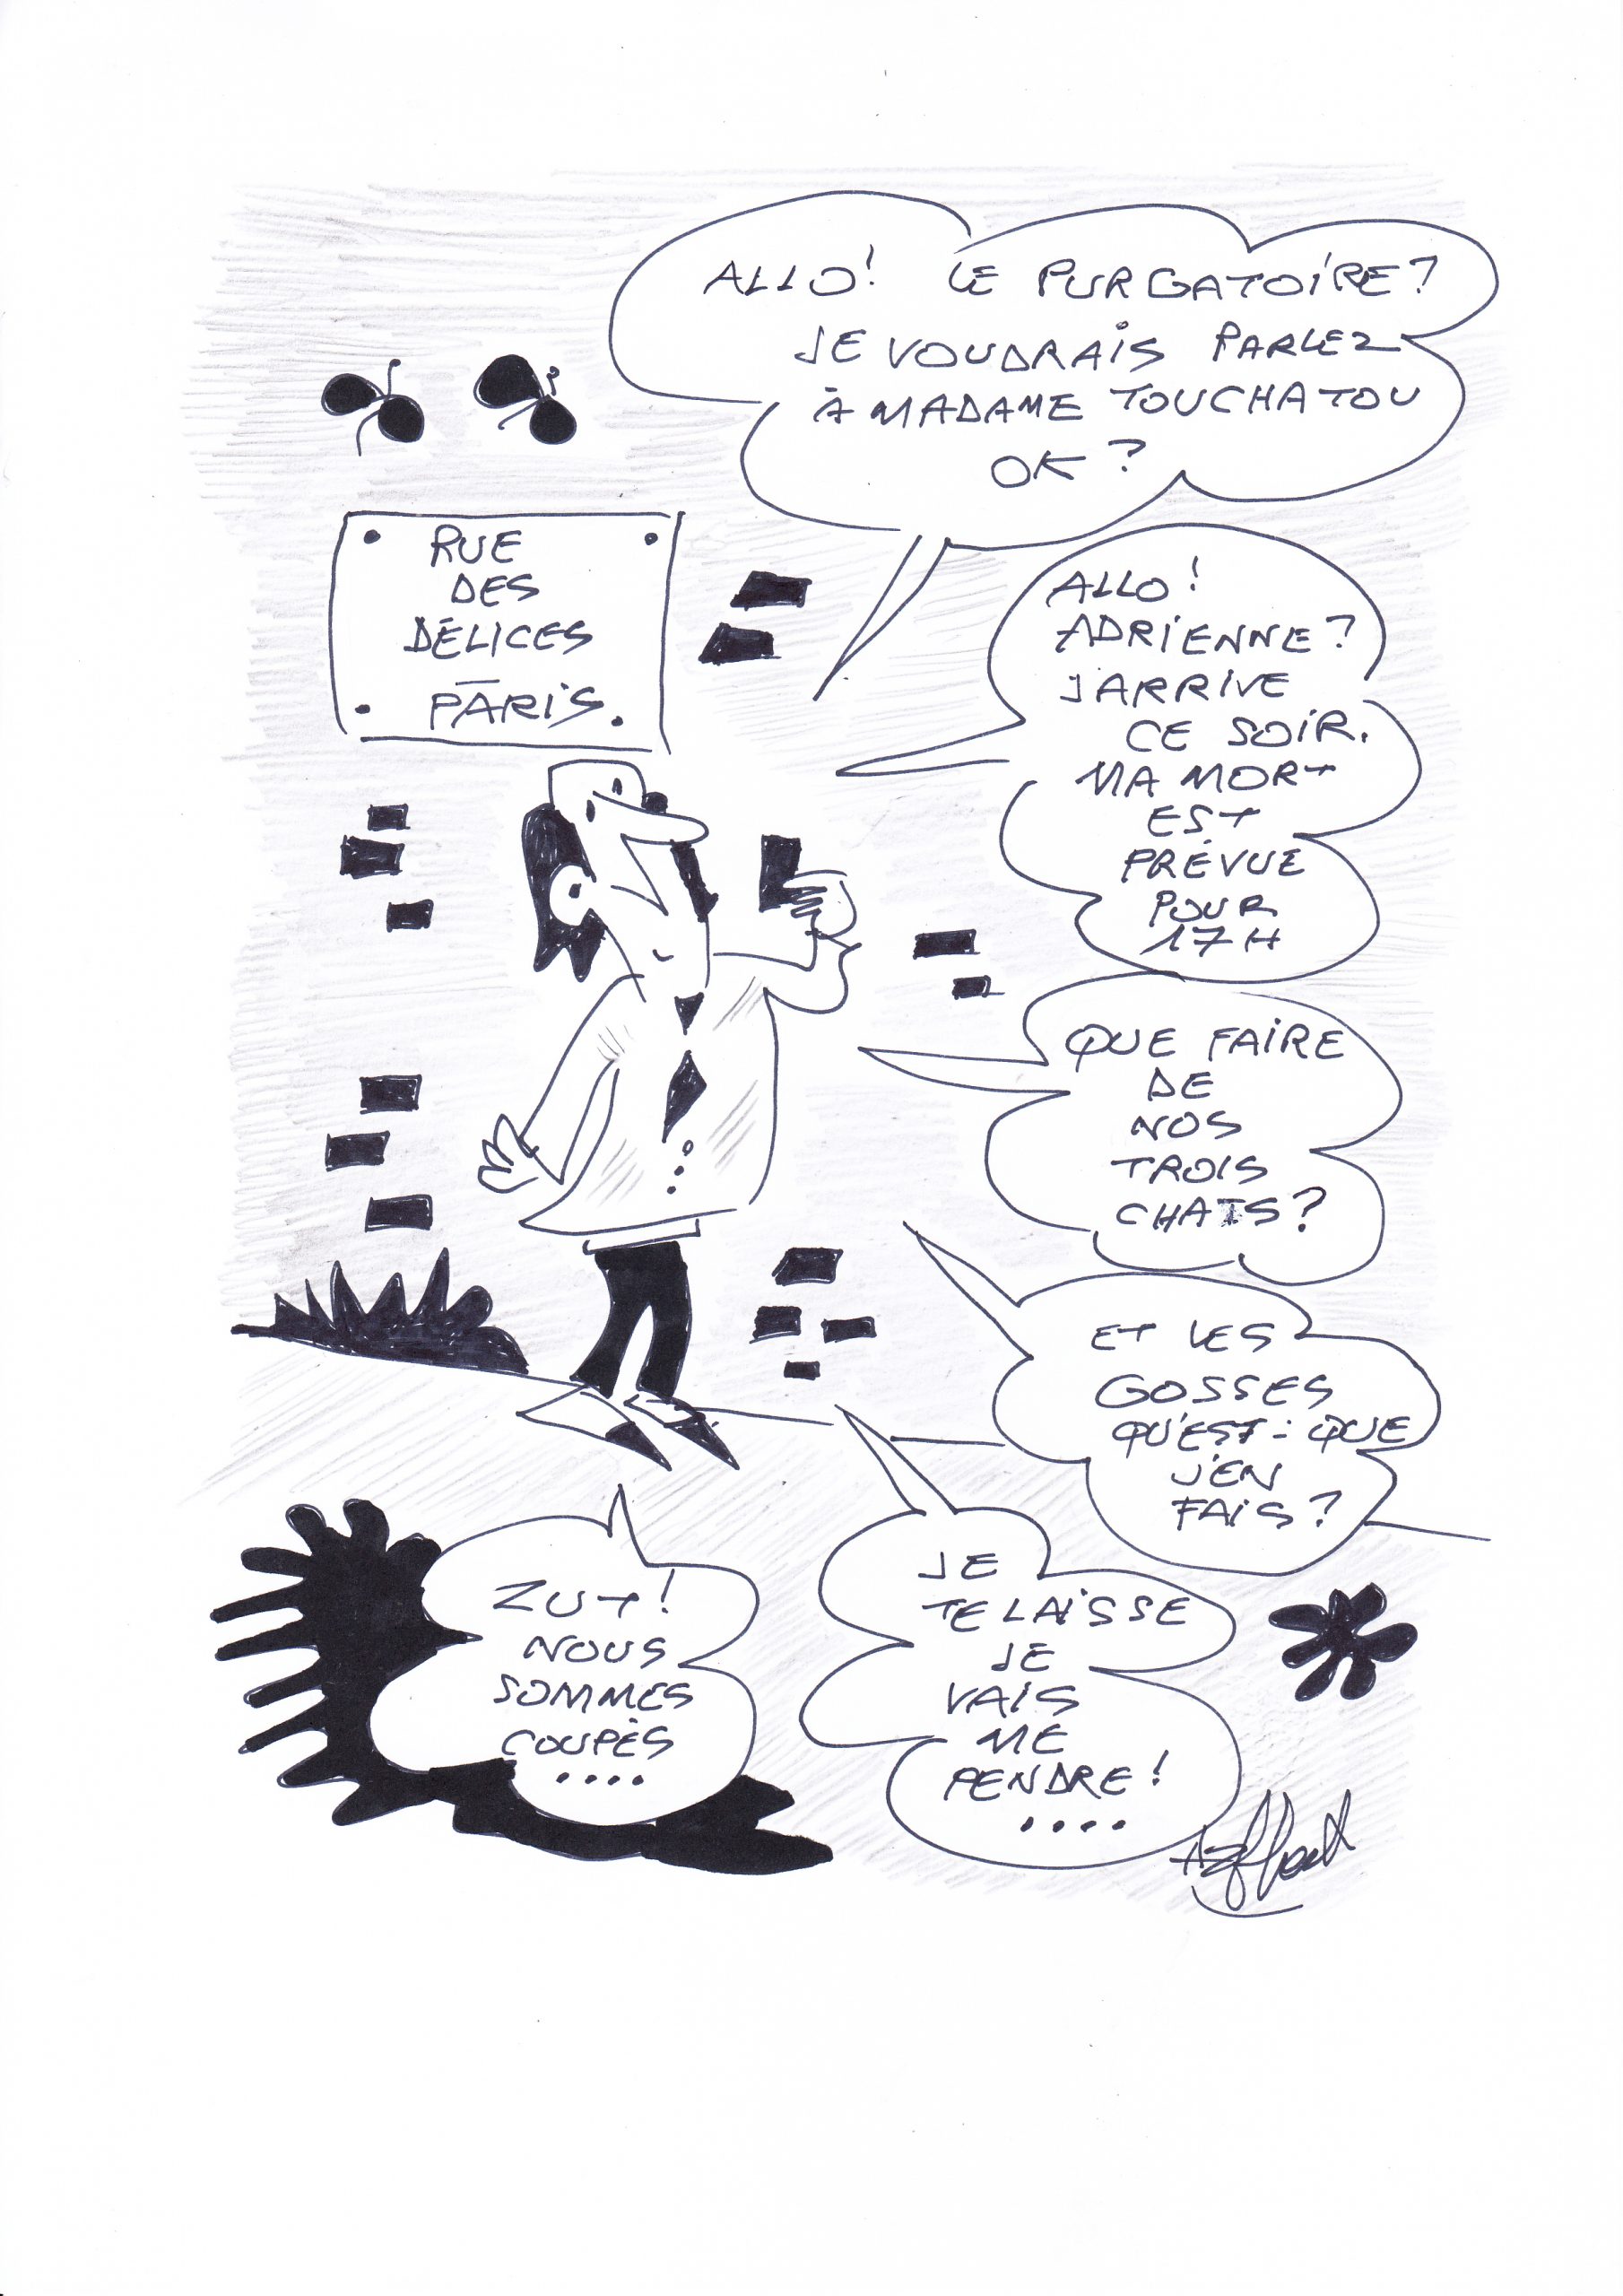 ALLO! LE PURGATOIRE?
JE VOUDRAIS PARLEZ
À MADAME TOUCHATOU
OK?
RUE
DES
DÉLICES
PARIS.
ALLO!
ADRIENNE?
J'ARRIVE
CE SOIR.
MA MORT
EST
PRÉVUE
POUR
17H
QUE FAIRE
DE
NOS
TROIS
CHATS?
ET LES
GOSSES
QU'EST-QUE
J'EN
FAIS?
JE
TE LAISSE
JE
VAIS
ME
PENDRE!
....
ZUT!
NOUS
SOMMES
COUPÉS
....